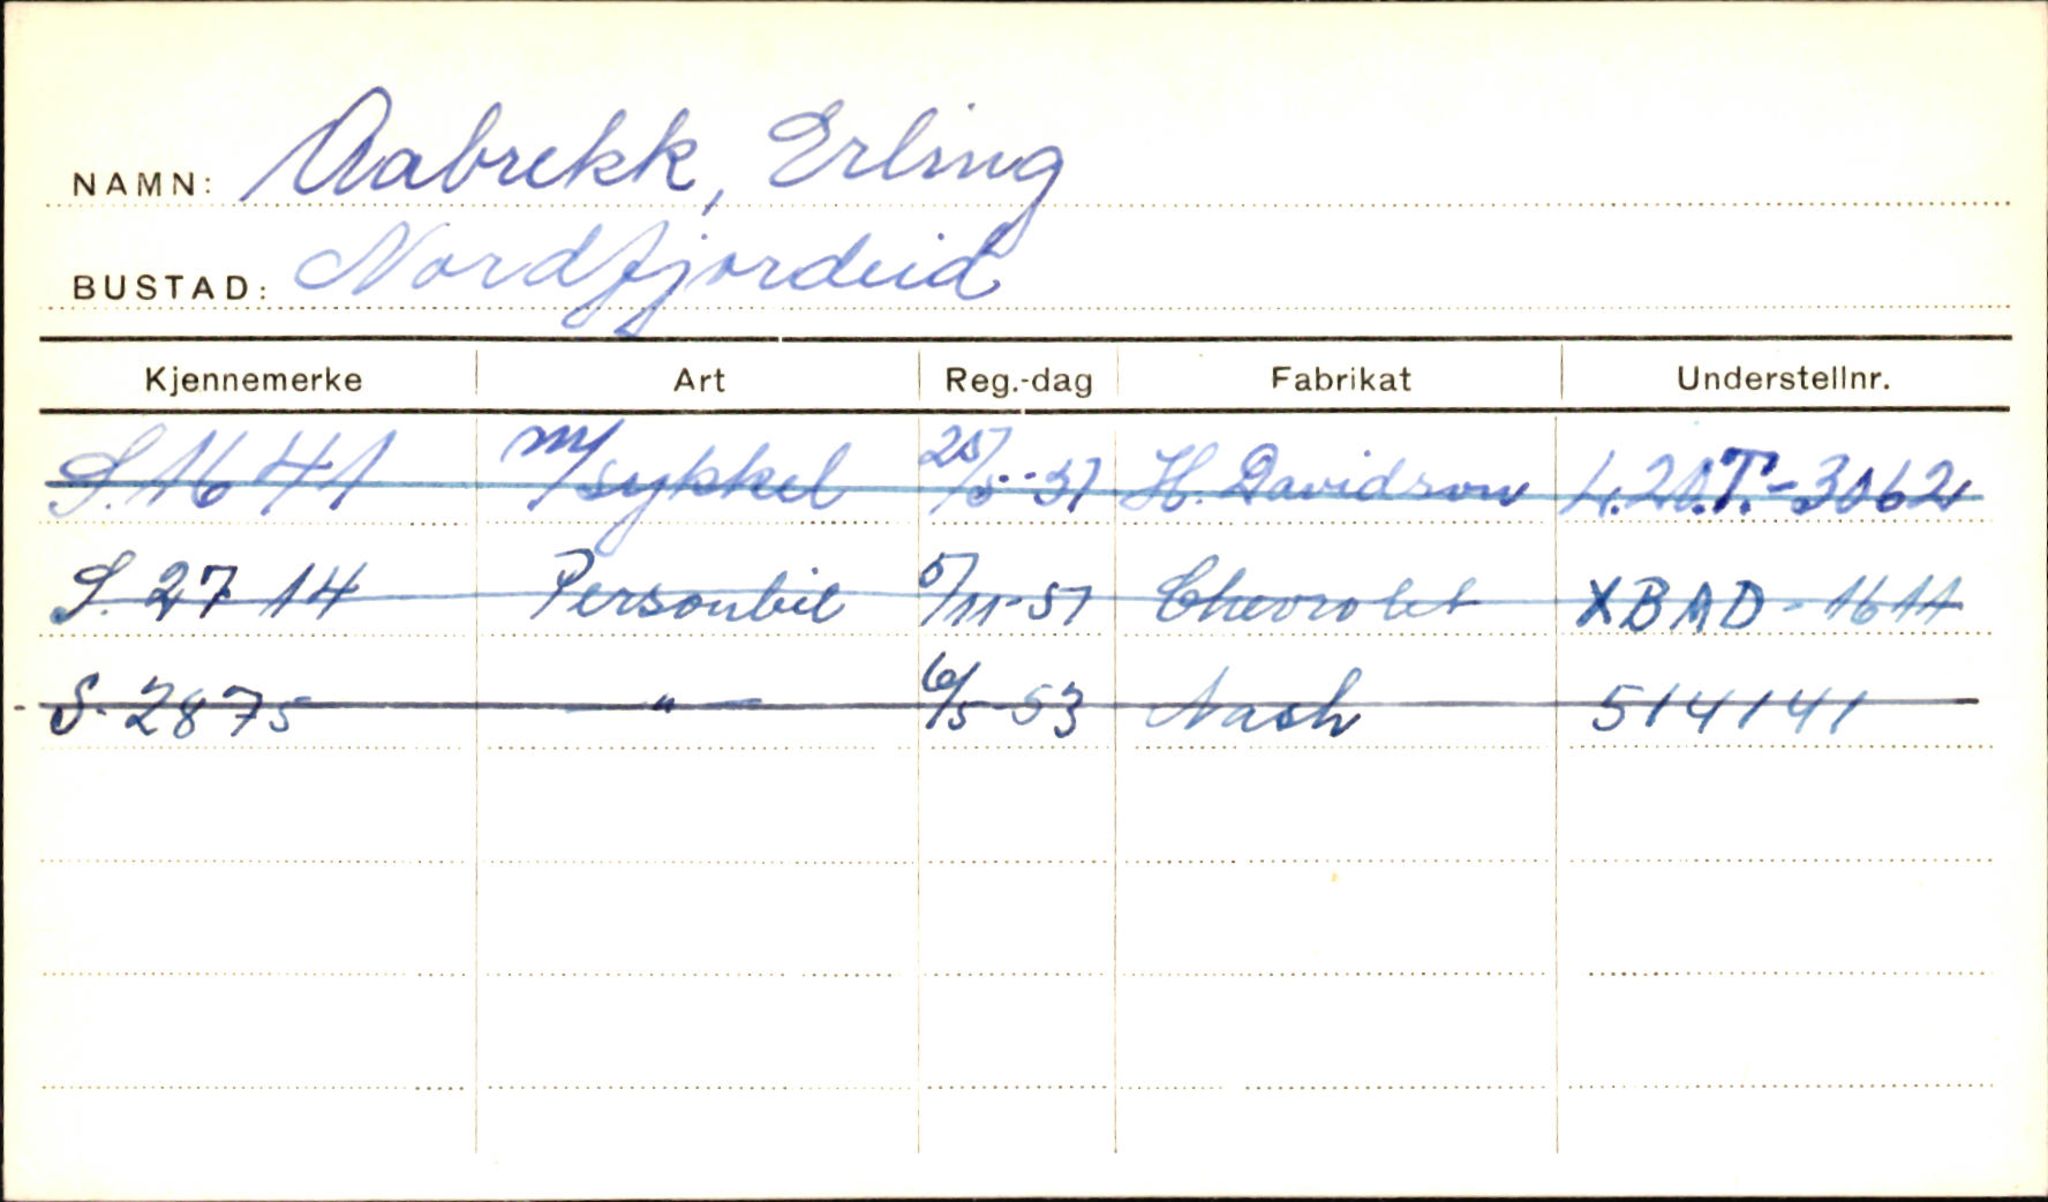 NAMN: Aabrekk, Erling
BUSTAD: Nordfjordeid
Kjennemerke Art Reg.-dag Fabrikat Understellnr.
S. 1641 m/sykkel 25/5-51 H. Davidson
S. 2714 Personbil 5/11-51 Chevrolet XBAD-1611
S. 2875 — " — 6/5-53 Nash 514141